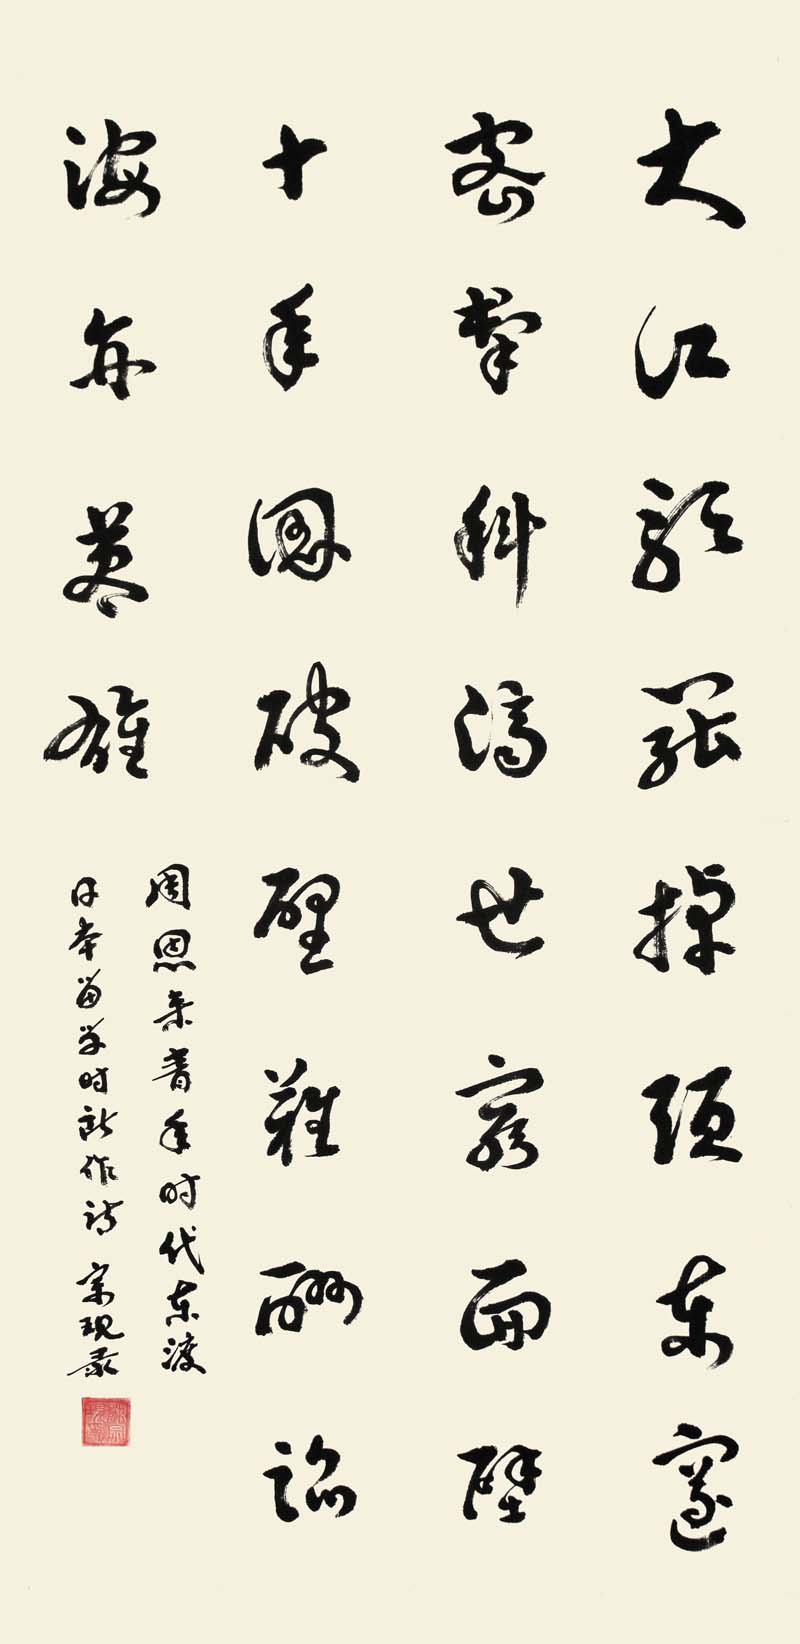 大江歌罷掉頭東邃
密群科濟世窮面壁
十年圖破壁難酬蹈
海亦英雄
周恩来青年时代东渡
日本留学时所作诗 现录